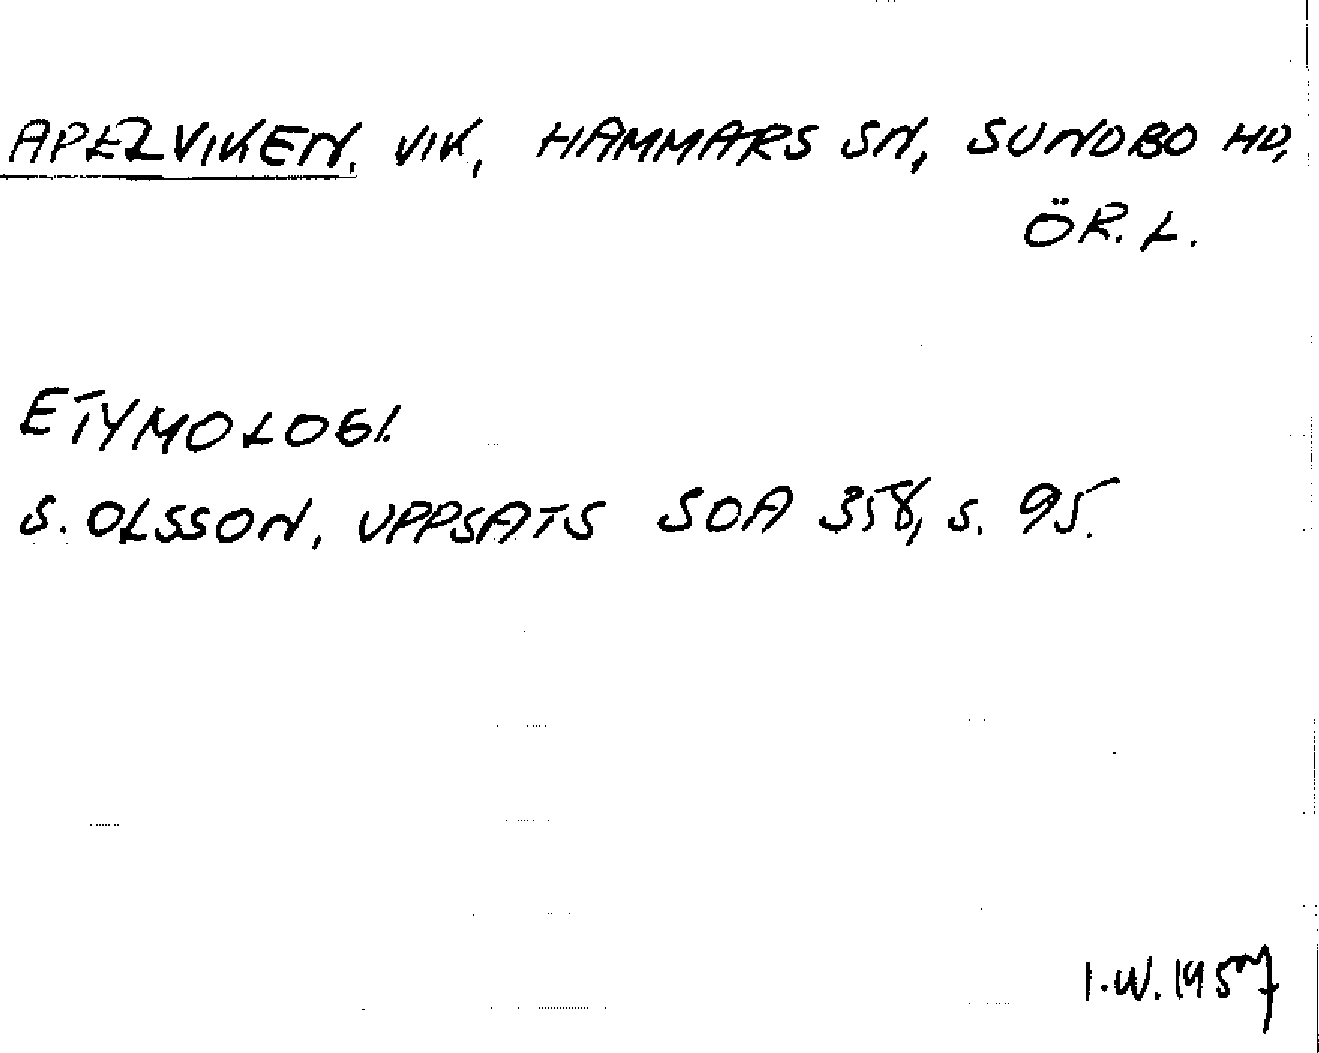 APELVIKEN, VIK, HAMMARS SN, SUNDBO HD,
ÖR. L.
ETYMOLOGI.
S. OLSSON, UPPSATS SOA 358, s. 95.
I.W. 1957